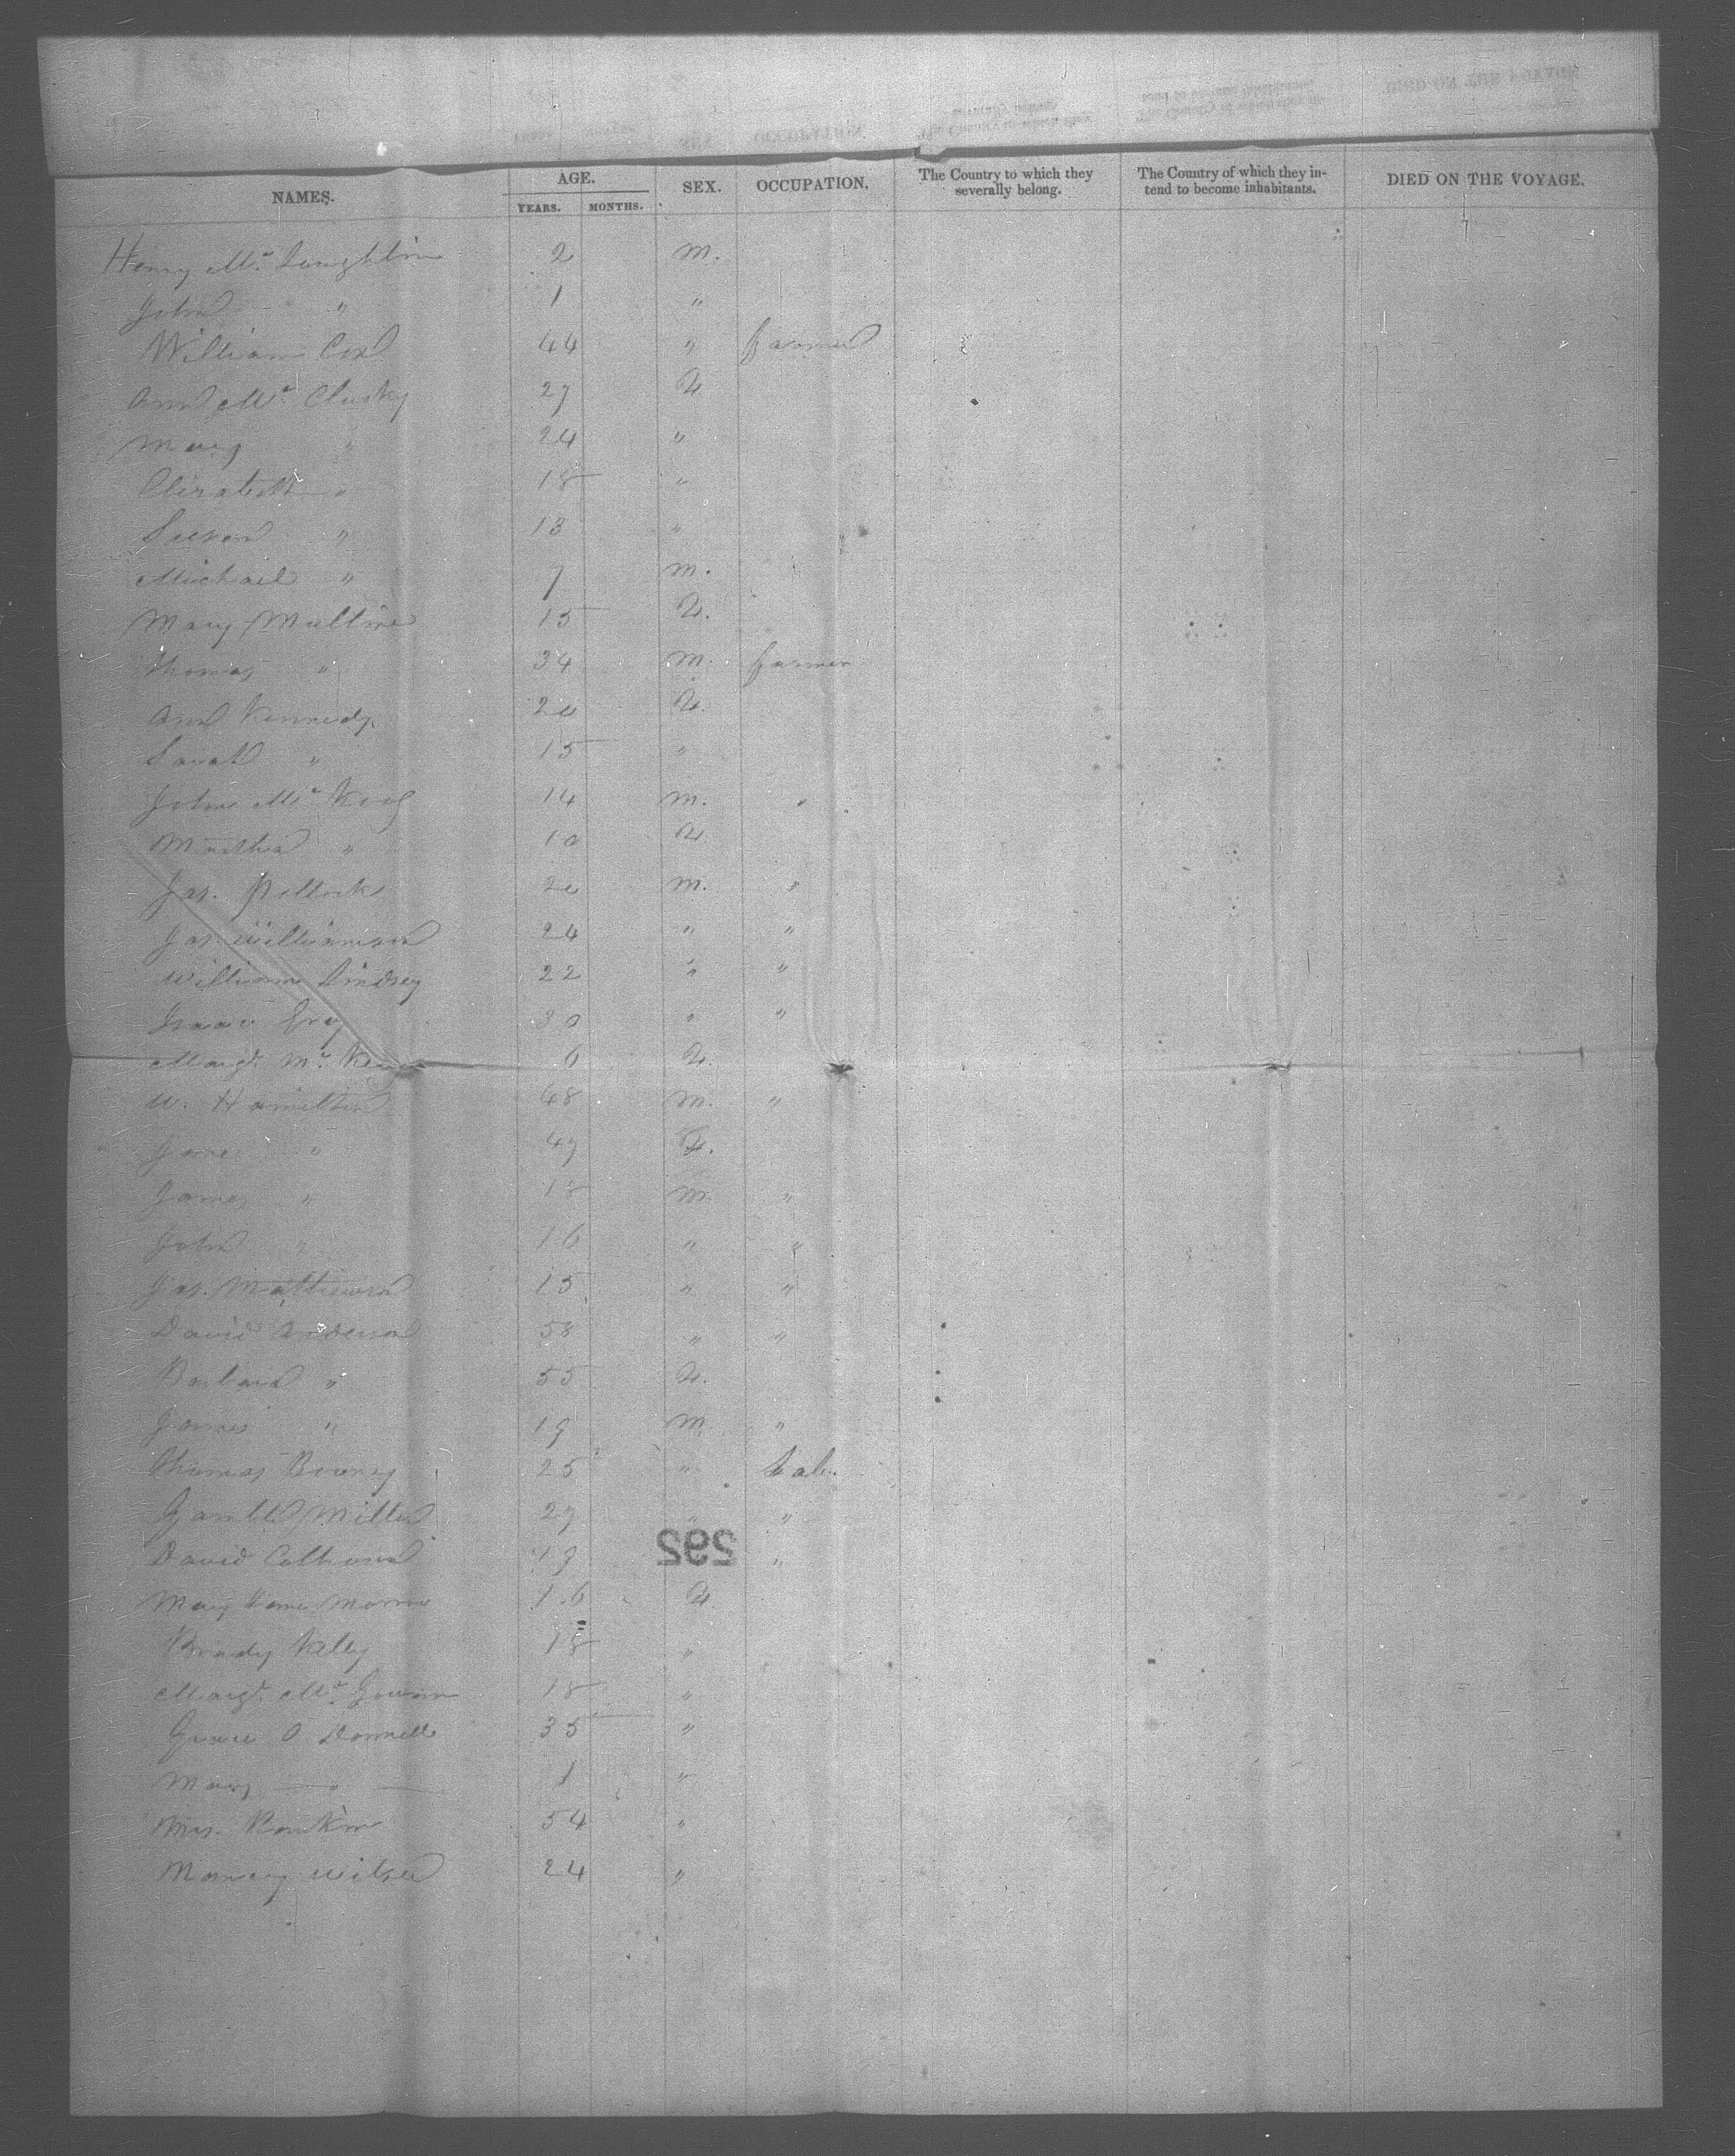 NAMES. AGE. YEARS. MONTHS. SEX. OCCUPATION. The Country to which they severally belong. The Country of which they intend to become inhabitants. DIED ON THE VOYAGE.
Henry Mc Laughlin 2 M.
John " 1 "
William Cox 44 " farmer
Ann Mc Clusky 27 F.
Mary " 24 "
Elizabeth " 18 "
Susan " 13 "
Michael " 7 M.
Mary 15 F.
Thomas " 34 M. farmer
Ann Kennedy 20 F.
Sarah " 15 "
John Mc 14 M. "
Martha " 10 F
Jas. Pollock 20 M. "
Jas. Williamson 24 " "
William Lindsey 22 " "
Isaac 30 " "
Margt. Mc 6 F.
W. Hamilton 48 M. "
Jane " 47 F.
James " 18 M. "
John " 16 " "
Jas. Mathewson 15 " "
David Anderson 58 " "
Barbara " 55 F.
James " 19 M. "
Thomas 25 " Labr.
Gamble Miller 27 " "
David Calhoun 19 "
292
Mary Jane 16 F
Kelly 18 "
Margt. Mc 18 "
Grace O Donnell 35 "
Mary " 1 "
Mrs. Rankin 54 "
24 "